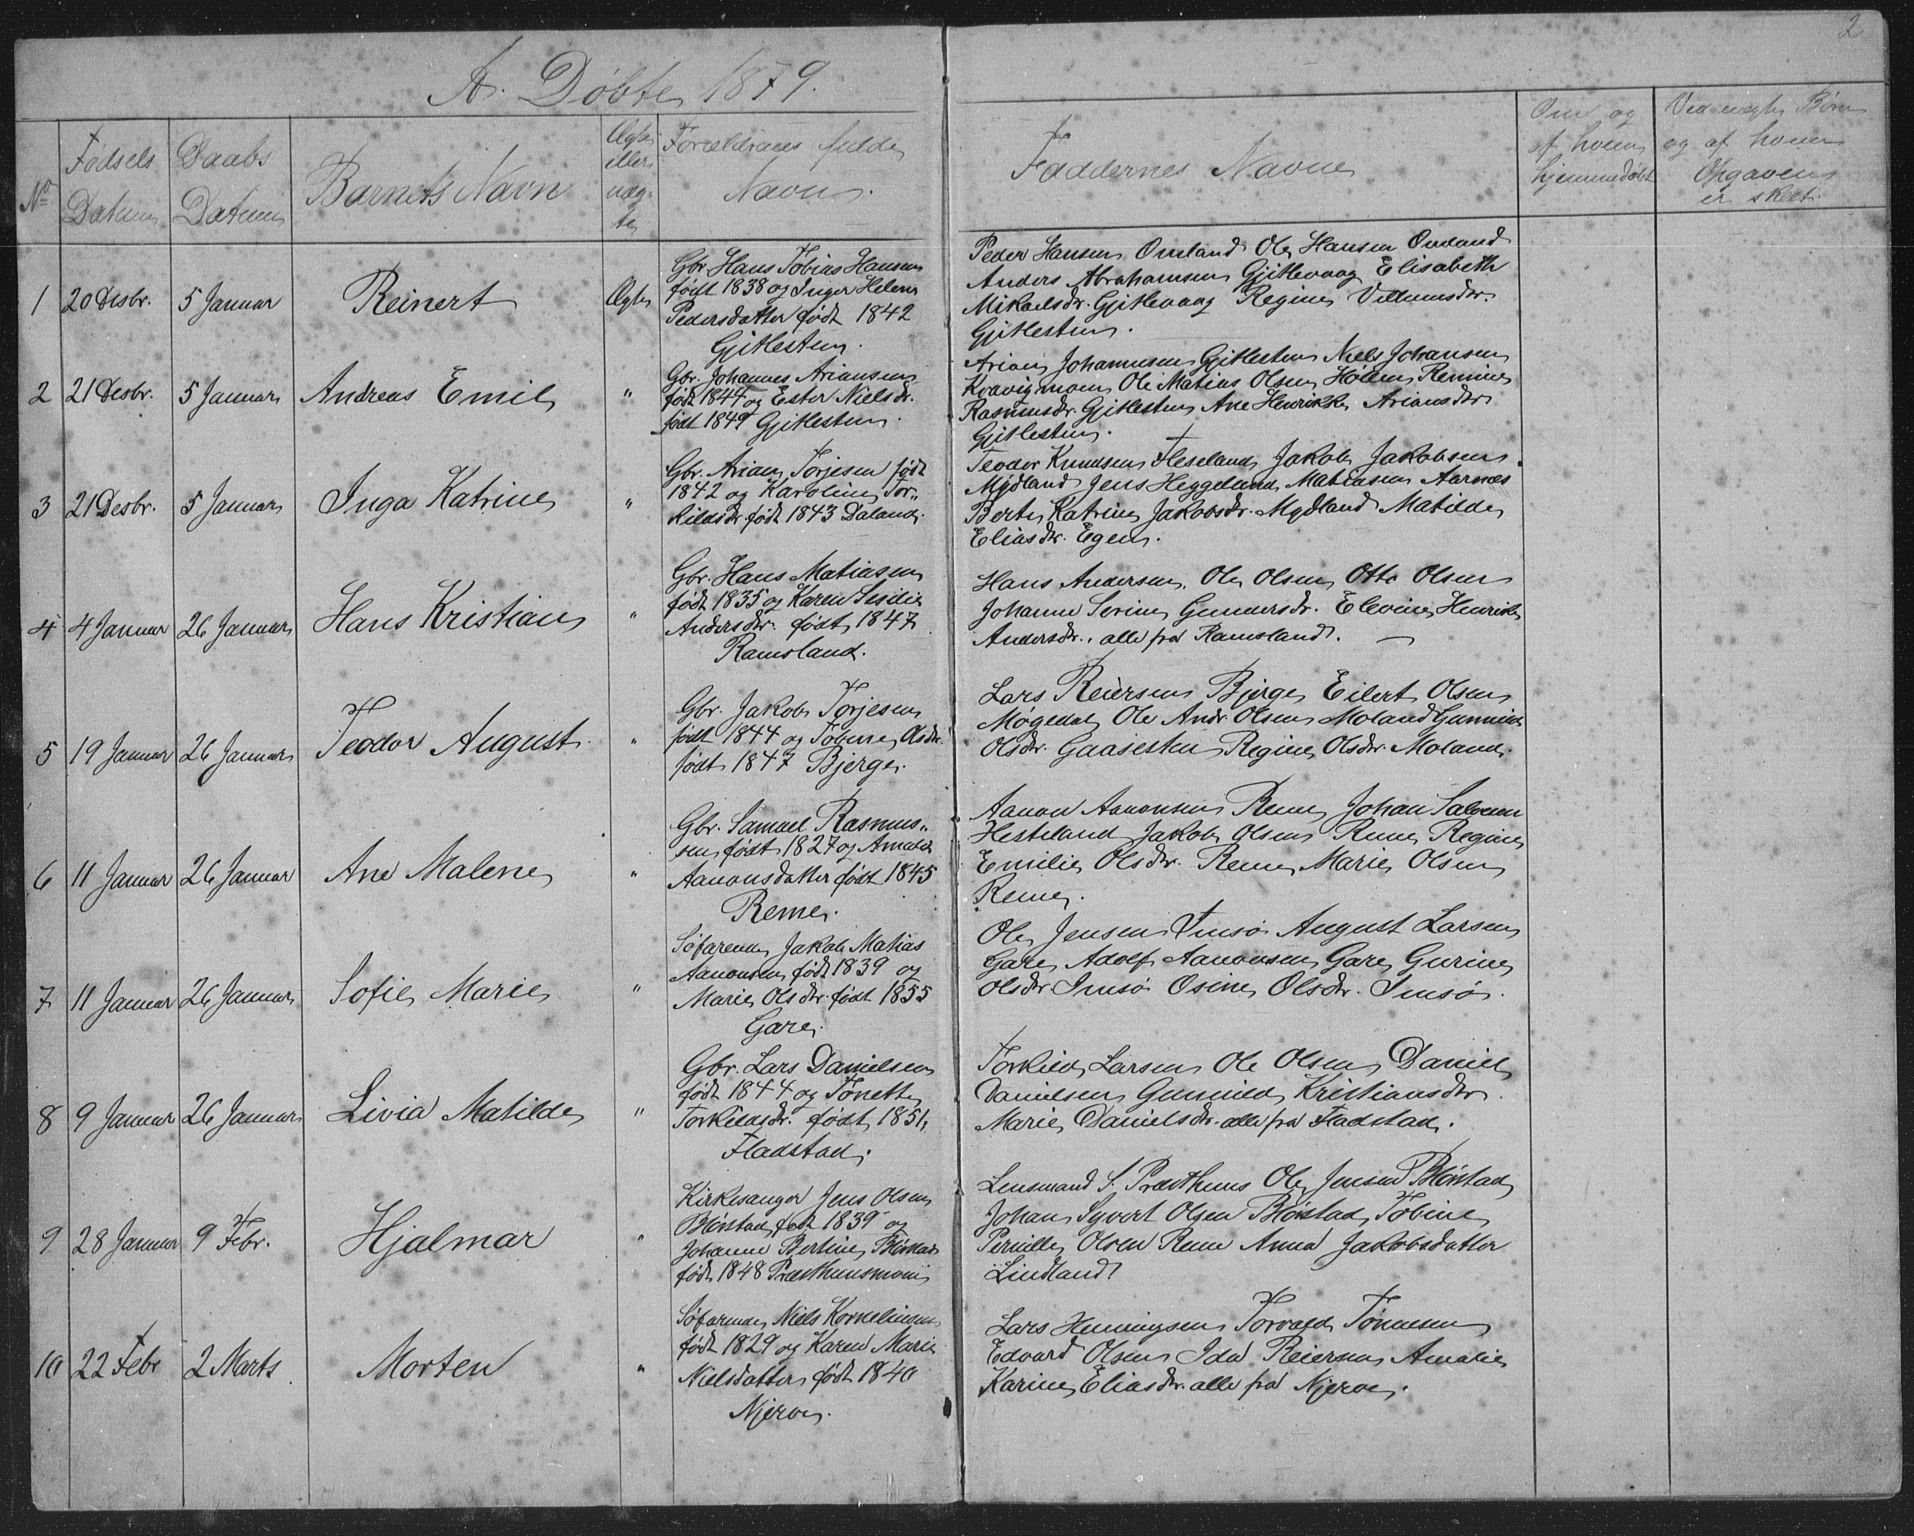 2
A. Døbte 1879.
No
Fødsels Datum
Daabs Datum
Barnets Navn
Ægte eller uæg-te
Forældrenes fulde Navn.
Faddernes Navne
Om og af hvem hjemmedøbt
Ved uægte Børn og af hvem Opgaven er skeet.
1 20 Desbr. 5 Januar Reinert Ægte
Gbr. Hans Tobias Hansen
født 1838 og Inger Helene
Pedersdatter født 1842
Gjitlesten.
Peder Hansen Omland Ole Hansen Omland
Anders Abrahamsen Gjitlevaag Elisabeth
Mikaelsdr. Gjitlevaag Regine Villumsdr.
Gjitlesten.
2 21 Desbr. 5 Januar Andreas Emil "
Gbr. Johannes Ariansen
født 1844 og Ester Nielsdr.
født 1849 Gjitlesten.
Arian Johannesen Gjitlesten Niels Johansen
Kvavigmoen Ole Matias Olsen Hölen
Rasmusdr. Gjitlesten Ane Henrikke Ariansdr.
Gjitlesten.
3 21 Desbr. 5 Januar Inga Katrine "
Gbr. Arian Torjesen født
1842 og Karoline Tor-
kildsdr. født 1843 Daland.
Teodor Knudsen Fleseland Jakob Jakobsen
Mydland Jens Heggelund Matiasen Aarnes
Berte Katrine Jakobsdr. Mydland Matilde
Eliasdr. Egen.
4 4 Januar 26 Januar Hans Kristian "
Gbr. Hans Matiasen
født 1835 og Karen Sesilie
Andersdr. født 1847
Ramsland.
Hans Andersen, Ole Olsen Otto Olsen
Johanne Serine Gundersdr. Elevine Henrikke
Andersdr., alle fra Ramsland. —
5 19 Januar 26 Januar Teodor August. "
Gbr. Jakob Torjesen
født 1844 og Tobine Olsdr.
født 1847 Bjerge.
Lars Reiersen Bjerge Eilert Olsen
Møgedal Ole Andr. Olsen Moland Gunnild
Olsdr. Gaasesten Regine Olsdr. Moland.
6 11 Januar 26 Januar Ane Malene "
Gbr. Samuel Rasmus-
sen født 1827 og Amalie
Aanonsdatter født 1845
Reme.
Aanon Aanonsen Reme Johan Salvesen
Hesteland Jakob Olsen Reme Regine
Emilie Olsdr. Reme Marie Olsen
Reme.
7 11 Januar 26 Januar Sofie Marie "
Søfarende Jakob Matias
Aanonsen født 1839 og
Marie Olsdr. født 1855
Gare.
Ole Jensen Imsø August Larsen
Gare Adolf Aanonsen Gare Gurine
Olsdr Imsø Osine Olsdr. Imsø.
8 9 Januar 26 Januar Livia Matilde "
Gbr. Lars Danielsen
født 1844 og Tonette
Torkildsdr. født 1851,
Fladstad.
Torkild Larsen Ole Olsen Daniel
Danielsen Gunnild Kristiansdr.
Marie Danielsdr. alle fra Fladstad.
9 28 Januar 9 Febr. Hjalmar "
Kirkesanger Jens Olsen
Blørstad født 1839 og
Johanne Bertine Blørstad
født 1848 Præsthusmoen
Lensmand S. Præsthuus Ole Jensen Blørstad
Johan Syvert Olsen Blørstad Tobine
Pernille Olsen Reme Anna Jakobsdatter
Lindland
10 22 Febr 2 Marts Morten "
Søfarende Niels Korneliusen
født 1829 og Karen Marie
Nielsdatter født 1840
Njerve.
Lars Henningsen Torvald Tønnesen
Edvard Olsen Ida Reiersen Amalie
Karine Eliasdr. alle fra Njerve.